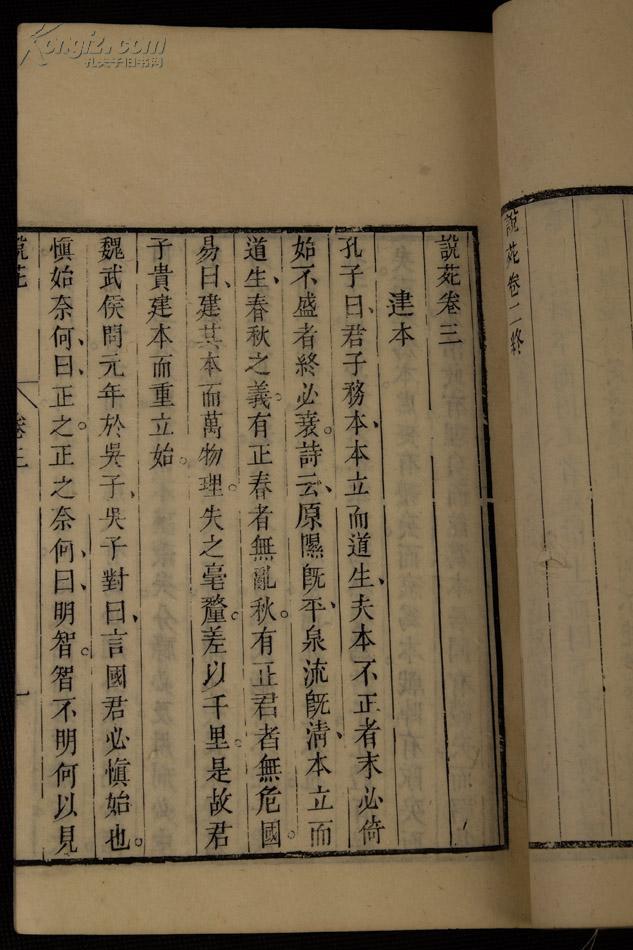 說苑卷二終
說苑卷三
建本
孔子曰、君子務本、本立而道生、夫本不正者末必倚
始不盛者終必衰。詩云、原隰既平、泉流既清、本立而
道生、春秋之義。有正春者無亂秋。有正君者無危國。
易曰、建其本而萬物理。失之毫釐。差以千里。是故君
子貴建本而重立始。
魏武侯問元年於吳子、吳子對曰、言國君必慎始也。
慎始奈何、曰、正之。正之奈何、曰、明智。智不明何以見
說苑
卷三
一
Kongfz.com
孔夫子旧书网